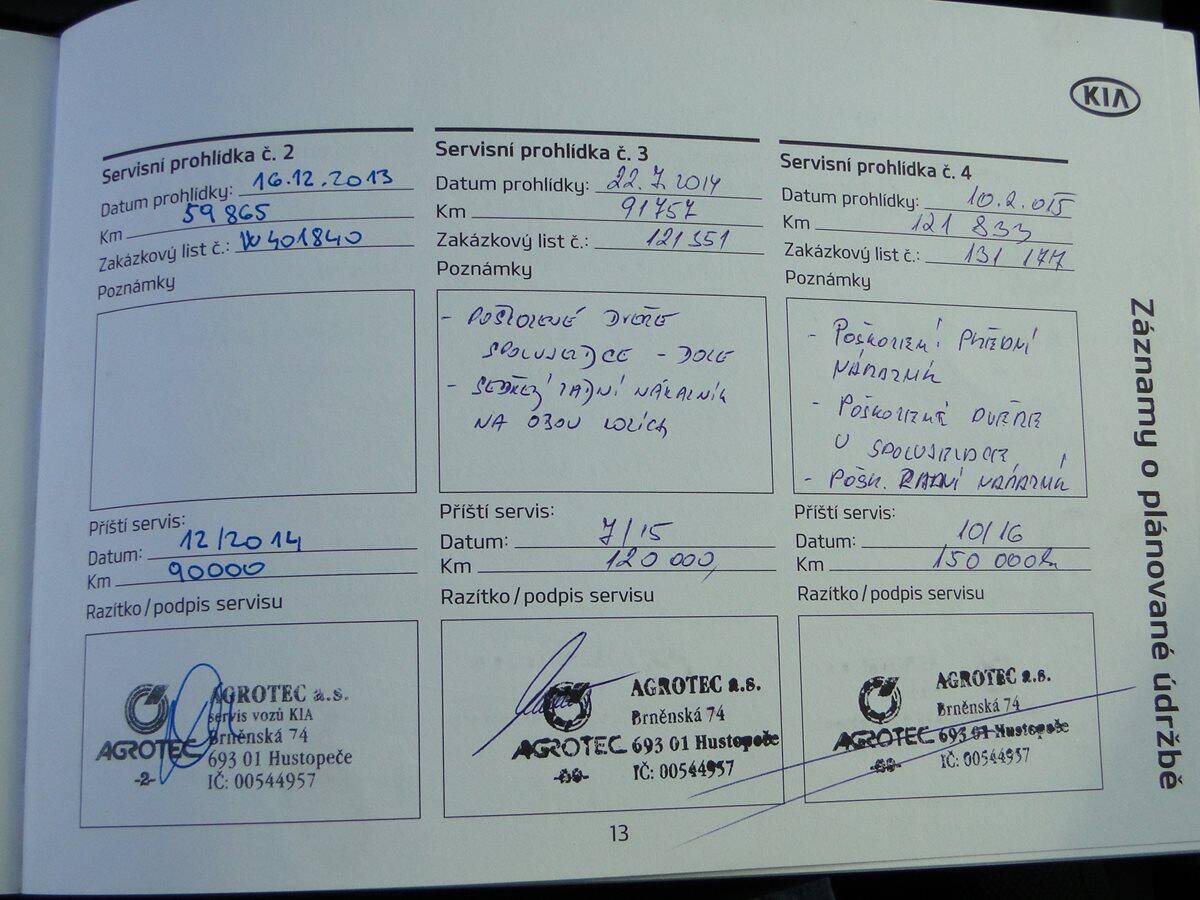 KIA
Servisní prohlídka č. 2
Datum prohlídky: 16.12.2013
Km 59865
Zakázkový list č.: W401840
Poznámky
Příští servis:
Datum: 12/2014
Km 90000
Razítko/podpis servisu
AGROTEC a.s.
servis vozů KIA
Brněnská 74
AGROTEC
693 01 Hustopeče
-2-
IČ: 00544957
Servisní prohlídka č. 3
Datum prohlídky: 22.7.2014
Km 91757
Zakázkový list č.: 121551
Poznámky
- POŠKOZENÉ DVEŘE
SPOLUJEZDCE - DOLE
- SEDŘENÝ ZADNÍ NÁRAZNÍK
NA OBOU ROZÍCH
Příští servis:
Datum: 7/15
Km 120 000
Razítko/podpis servisu
AGROTEC a.s.
Brněnská 74
AGROTEC
693 01 Hustopeče
IČ: 00544957
Servisní prohlídka č. 4
Datum prohlídky: 10.2.015
Km 121 833
Zakázkový list č.: 131 177
Poznámky
- POŠKOZENÍ PŘEDNÍ
NÁRAZNÍK
- POŠKOZENÉ DVEŘE
U SPOLUJEZDCE
- POŠK. ZADNÍ NÁRAZNÍK
Příští servis:
Datum: 10/16
Km 150 000
Razítko/podpis servisu
AGROTEC a.s.
Brněnská 74
AGROTEC
693 01 Hustopeče
IČ: 00544957
Záznamy o plánované údržbě
13